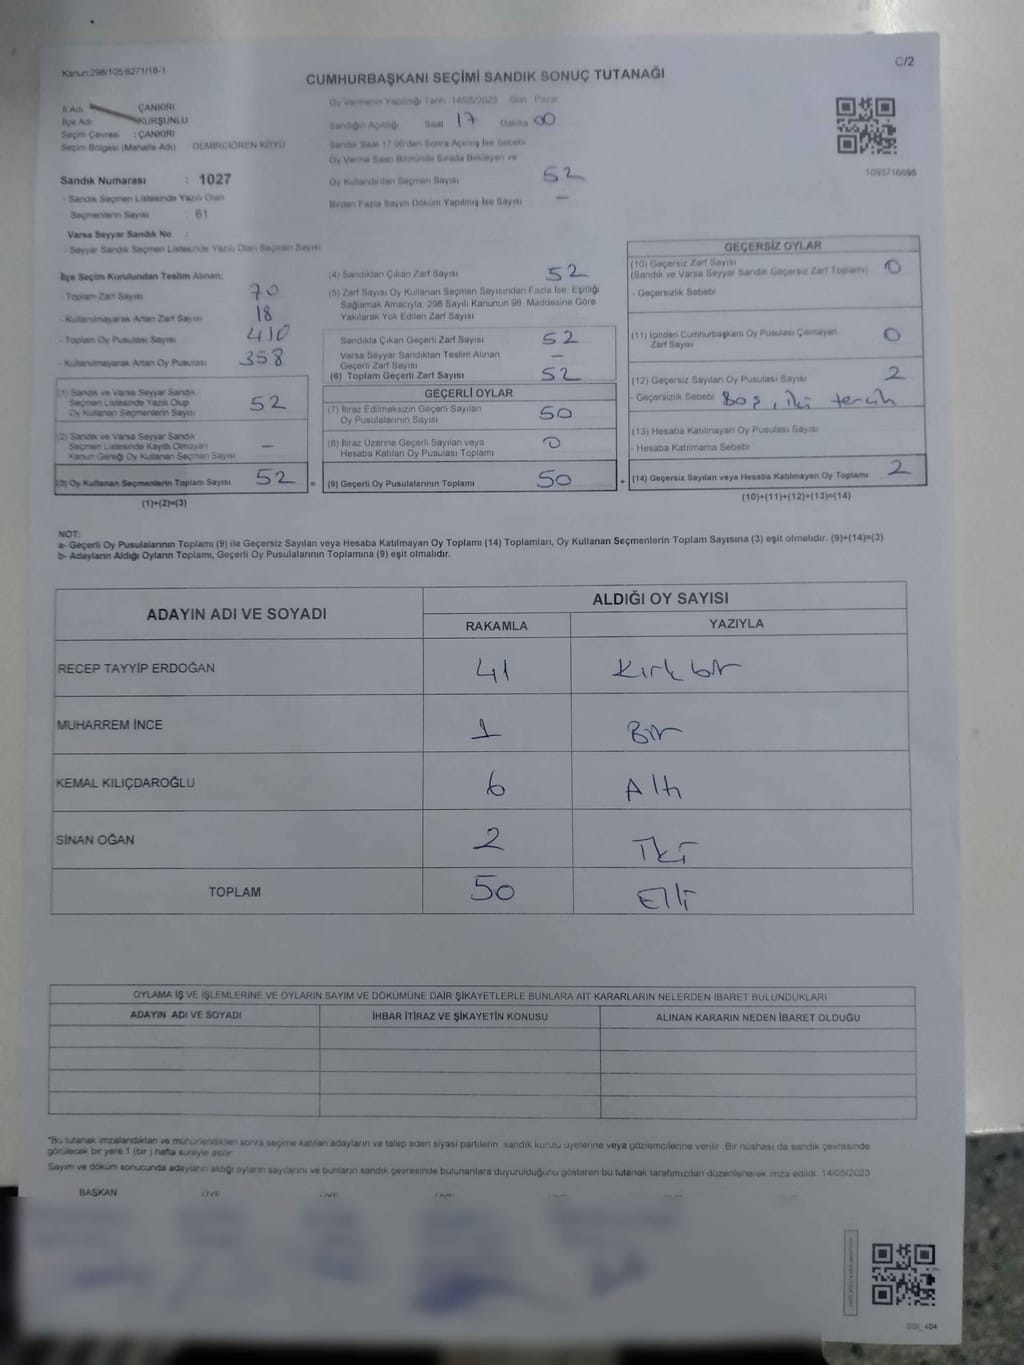 Kanun:298/105 6271/18-1
C/2
CUMHURBAŞKANI SEÇİMİ SANDIK SONUÇ TUTANAĞI
İl Adı ÇANKIRI
İlçe Adı KURŞUNLU
Seçim Çevresi : ÇANKIRI
Seçim Bölgesi (Mahalle Adı) DEMİRCİÖREN KÖYÜ
Sandık Numarası : 1027
- Sandık Seçmen Listesinde Yazılı Olan
Seçmenlerin Sayısı : 61
Varsa Seyyar Sandık No :
- Seyyar Sandık Seçmen Listesinde Yazılı Olan Seçmen Sayısı
Oy Vermenin Yapıldığı Tarih 14/05/2023 Gün Pazar
Sandığın Açıldığı Saat 17 Dakika 00
Sandık Saat 17.00'den Sonra Açılmış İse Sebebi
Oy Verme Saati Bitiminde Sırada Bekleyen ve
Oy Kullandırılan Seçmen Sayısı 52
Birden Fazla Sayım Döküm Yapılmış İse Sayısı —
1093716695
İlçe Seçim Kurulundan Teslim Alınan;
- Toplam Zarf Sayısı 70
- Kullanılmayarak Artan Zarf Sayısı 18
- Toplam Oy Pusulası Sayısı 410
- Kullanılmayarak Artan Oy Pusulası 358
(1) Sandık ve Varsa Seyyar Sandık
Seçmen Listesinde Yazılı Olup
Oy Kullanan Seçmenlerin Sayısı 52
(2) Sandık ve Varsa Seyyar Sandık
Seçmen Listesinde Kayıtlı Olmayan
Kanun Gereği Oy Kullanan Seçmen Sayısı —
(3) Oy Kullanan Seçmenlerin Toplam Sayısı 52 =
(1)+(2)=(3)
(4) Sandıktan Çıkan Zarf Sayısı 52
(5) Zarf Sayısı Oy Kullanan Seçmen Sayısından Fazla İse; Eşitliği
Sağlamak Amacıyla, 298 Sayılı Kanunun 98. Maddesine Göre
Yakılarak Yok Edilen Zarf Sayısı
Sandıkta Çıkan Geçerli Zarf Sayısı 52
Varsa Seyyar Sandıktan Teslim Alınan
Geçerli Zarf Sayısı —
(6) Toplam Geçerli Zarf Sayısı 52
GEÇERLİ OYLAR
(7) İtiraz Edilmeksizin Geçerli Sayılan
Oy Pusulalarının Sayısı 50
(8) İtiraz Üzerine Geçerli Sayılan veya
Hesaba Katılan Oy Pusulası Toplamı 0
(9) Geçerli Oy Pusulalarının Toplamı 50 +
GEÇERSİZ OYLAR
(10) Geçersiz Zarf Sayısı 0
(Sandık ve Varsa Seyyar Sandık Geçersiz Zarf Toplamı)
- Geçersizlik Sebebi
(11) İçinden Cumhurbaşkanı Oy Pusulası Çıkmayan
Zarf Sayısı 0
(12) Geçersiz Sayılan Oy Pusulası Sayısı 2
- Geçersizlik Sebebi Boş, iki tercih
(13) Hesaba Katılmayan Oy Pusulası Sayısı
- Hesaba Katılmama Sebebi
(14) Geçersiz Sayılan veya Hesaba Katılmayan Oy Toplamı 2
(10)+(11)+(12)+(13)=(14)
NOT:
a- Geçerli Oy Pusulalarının Toplamı (9) ile Geçersiz Sayılan veya Hesaba Katılmayan Oy Toplamı (14) Toplamları, Oy Kullanan Seçmenlerin Toplam Sayısına (3) eşit olmalıdır. (9)+(14)=(3)
b- Adayların Aldığı Oyların Toplamı, Geçerli Oy Pusulalarının Toplamına (9) eşit olmalıdır.
ADAYIN ADI VE SOYADI
ALDIĞI OY SAYISI
RAKAMLA YAZIYLA
RECEP TAYYİP ERDOĞAN 41 Kırkbir
MUHARREM İNCE 1 Bir
KEMAL KILIÇDAROĞLU 6 Altı
SİNAN OĞAN 2 İki
TOPLAM 50 Elli
OYLAMA İŞ VE İŞLEMLERİNE VE OYLARIN SAYIM VE DÖKÜMÜNE DAİR ŞİKAYETLERLE BUNLARA AİT KARARLARIN NELERDEN İBARET BULUNDUKLARI
ADAYIN ADI VE SOYADI İHBAR İTİRAZ VE ŞİKAYETİN KONUSU ALINAN KARARIN NEDEN İBARET OLDUĞU
"Bu tutanak imzalandıktan ve mühürlendikten sonra seçime katılan adayların ve talep eden siyasi partilerin sandık kurulu üyelerine veya gözlemcilerine verilir. Bir nüshası da sandık çevresinde
görülecek bir yere 1 (bir) hafta süreyle asılır.
Sayım ve döküm sonucunda adayların aldığı oyların sayılarını ve bunların sandık çevresinde bulunanlara duyurulduğunu gösteren bu tutanak tarafımızdan düzenlenerek imza edildi. 14/05/2023
BAŞKAN ÜYE ÜYE